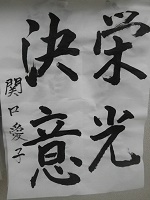 栄光
決意
関口愛子